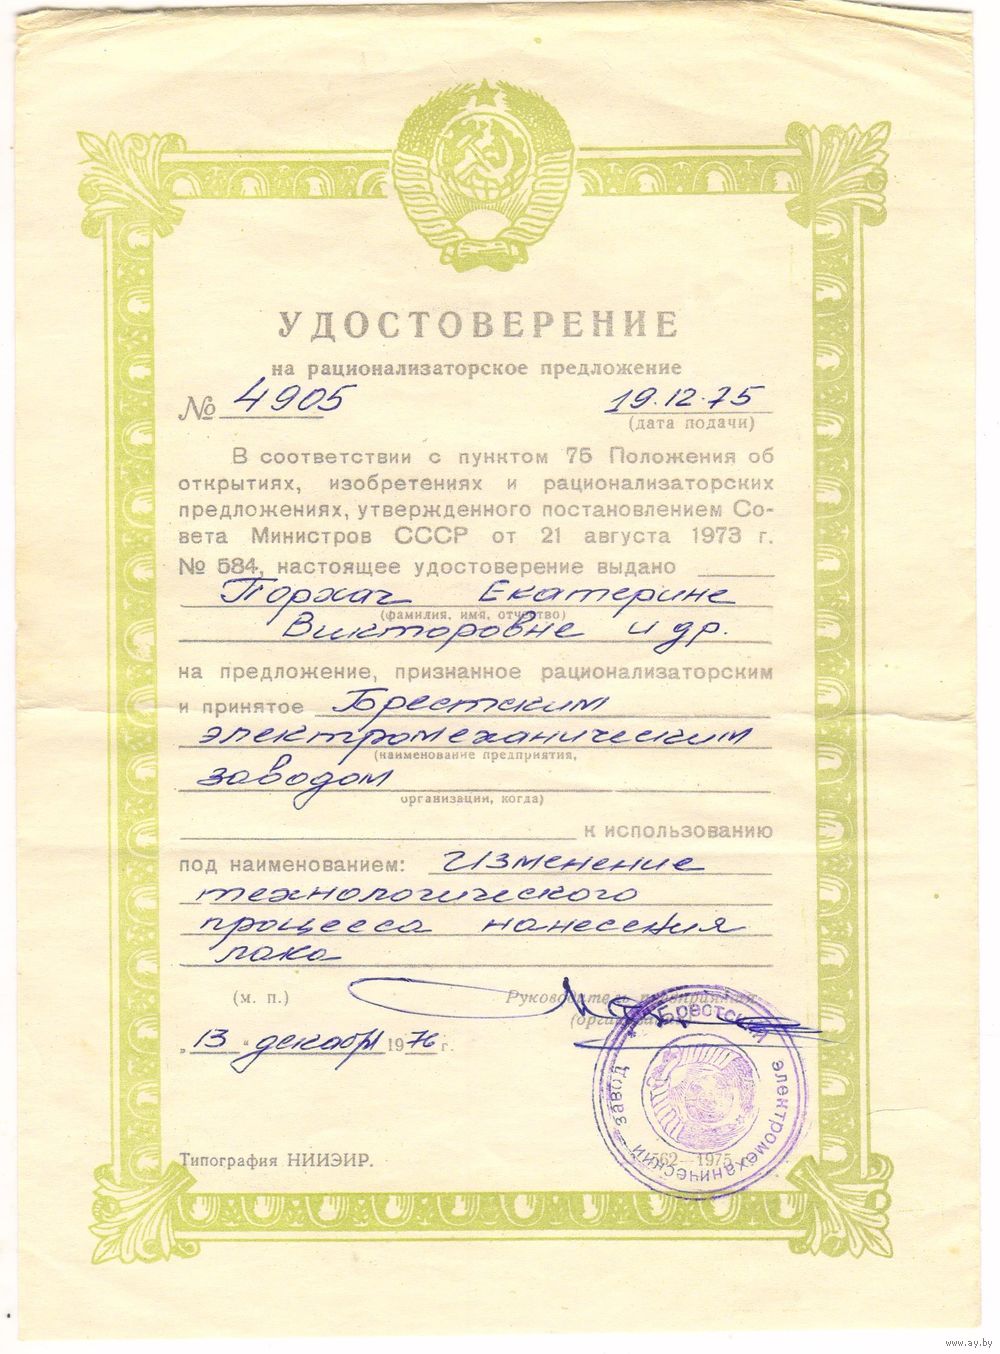 УДОСТОВЕРЕНИЕ
на рационализаторское предложение
№ 4905 19.12.75
(дата подачи)
В соответствии с пунктом 75 Положения об
открытиях, изобретениях и рационализаторских
предложениях, утвержденного постановлением Со-
вета Министров СССР от 21 августа 1973 г.
№ 584, настоящее удостоверение выдано
Порхач Екатерине
(фамилия, имя, отчество)
Викторовне и др.
на предложение, признанное рационализаторским
и принятое Брестским
электромеханическим
(наименование предприятия,
заводом
организации, когда)
к использованию
под наименованием: Изменение
технологического
процесса нанесения
лака
(м. п.) Руководитель предприятия
(организации)
„13“ декабря 1976 г.
Брестский электромеханический завод
Типография НИИЭИР. 562—1975
www.ay.by